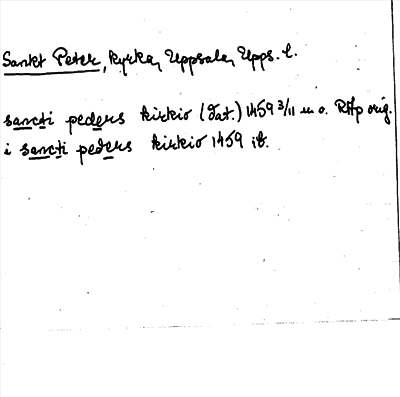 Sankt Peter, kyrka, Uppsala, Upps. l.
sancti peders kirkio (dat.) 1459 3/11 u o. RAp orig.
i sancti peders kirkio 1459 ib.